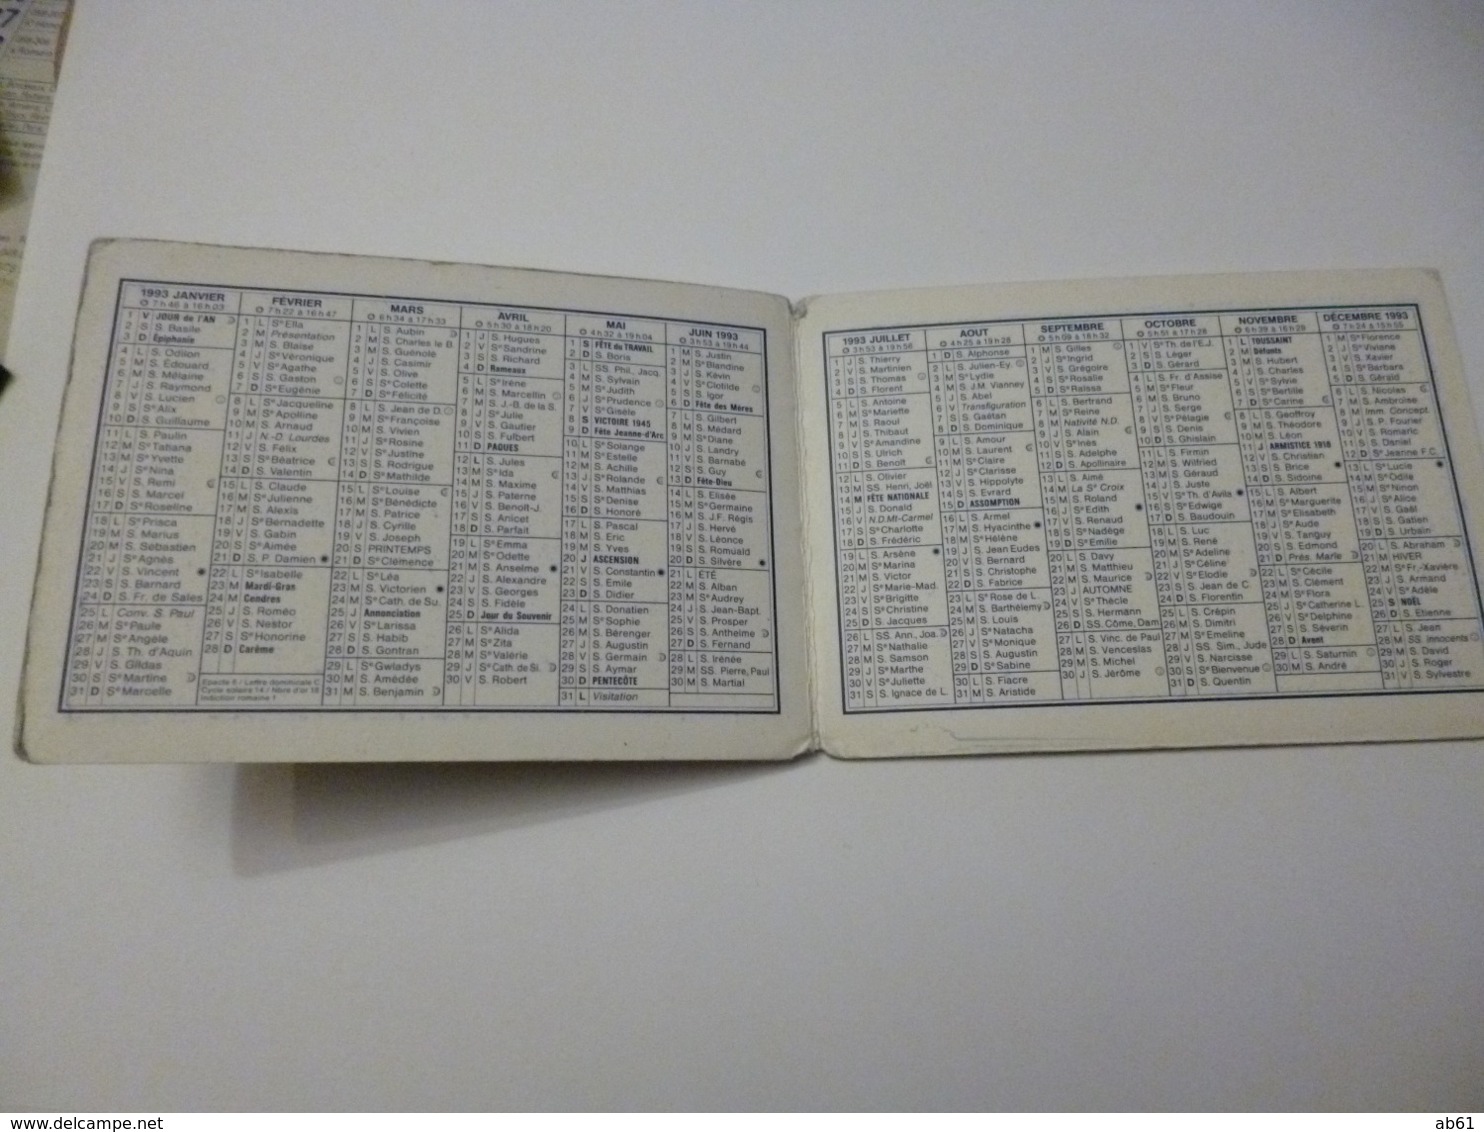 1993 JANVIER
7 h 46 à 16 h 03
1 V JOUR de l'AN
2 S S. Basile
3 D Epiphanie
4 L S. Odilon
5 M S. Edouard
6 M S. Mélaine
7 J S. Raymond
8 V S. Lucien
9 S Sᵉ Alix
10 D S. Guillaume
11 L S. Paulin
12 M Sᵉ Tatiana
13 M Sᵉ Yvette
14 J Sᵉ Nina
15 V S. Remi
16 S S. Marcel
17 D Sᵉ Roseline
18 L Sᵉ Prisca
19 M S. Marius
20 M S. Sébastien
21 J Sᵉ Agnès
22 V S. Vincent
23 S S. Barnard
24 D S. Fr. de Sales
25 L Conv. S. Paul
26 M Sᵉ Paule
27 M Sᵉ Angèle
28 J S. Th. d'Aquin
29 V S. Gildas
30 S Sᵉ Martine
31 D Sᵉ Marcelle
FÉVRIER
7 h 22 à 16 h 47
1 L Sᵉ Ella
2 M Présentation
3 M S. Blaise
4 J Sᵉ Véronique
5 V Sᵉ Agathe
6 S S. Gaston
7 D Sᵉ Eugénie
8 L Sᵉ Jacqueline
9 M Sᵉ Apolline
10 M S. Arnaud
11 J N.-D. Lourdes
12 V S. Félix
13 S Sᵉ Béatrice
14 D S. Valentin
15 L S. Claude
16 M Sᵉ Julienne
17 M S. Alexis
18 J Sᵉ Bernadette
19 V S. Gabin
20 S Sᵉ Aimée
21 D S. P. Damien
22 L Sᵉ Isabelle
23 M Mardi-Gras
24 M Cendres
25 J S. Roméo
26 V S. Nestor
27 S Sᵉ Honorine
28 D Carême
Epacte 6 / Lettre dominicale C
Cycle solaire 14 / Nbre d'or 18
Indiction romaine 1
MARS
6 h 34 à 17 h 33
1 L S. Aubin
2 M S. Charles le B.
3 M S. Guénolé
4 J S. Casimir
5 V S. Olive
6 S Sᵉ Colette
7 D Sᵉ Félicité
8 L S. Jean de D.
9 M Sᵉ Françoise
10 M S. Vivien
11 J Sᵉ Rosine
12 V Sᵉ Justine
13 S S. Rodrigue
14 D Sᵉ Mathilde
15 L Sᵉ Louise
16 M Sᵉ Bénédicte
17 M S. Patrice
18 J S. Cyrille
19 V S. Joseph
20 S PRINTEMPS
21 D Sᵉ Clémence
22 L Sᵉ Léa
23 M S. Victorien
24 M Sᵉ Cath. de Su.
25 J Annonciation
26 V Sᵉ Larissa
27 S S. Habib
28 D S. Gontran
29 L Sᵉ Gwladys
30 M S. Amédée
31 M S. Benjamin
AVRIL
5 h 30 à 18 h 20
1 J S. Hugues
2 V Sᵉ Sandrine
3 S S. Richard
4 D Rameaux
5 L Sᵉ Irène
6 M S. Marcellin
7 M S. J.-B. de la S.
8 J Sᵉ Julie
9 V S. Gautier
10 S S. Fulbert
11 D PAQUES
12 L S. Jules
13 M Sᵉ Ida
14 M S. Maxime
15 J S. Paterne
16 V S. Benoît-J.
17 S S. Anicet
18 D S. Parfait
19 L Sᵉ Emma
20 M Sᵉ Odette
21 M S. Anselme
22 J S. Alexandre
23 V S. Georges
24 S S. Fidèle
25 D Jour du Souvenir
26 L Sᵉ Alida
27 M Sᵉ Zita
28 M Sᵉ Valérie
29 J Sᵉ Cath. de Si.
30 V S. Robert
MAI
4 h 32 à 19 h 04
1 S FÊTE du TRAVAIL
2 D S. Boris
3 L SS. Phil., Jacq.
4 M S. Sylvain
5 M Sᵉ Judith
6 J Sᵉ Prudence
7 V Sᵉ Gisèle
8 S VICTOIRE 1945
9 D Fête Jeanne-d'Arc
10 L Sᵉ Solange
11 M Sᵉ Estelle
12 M S. Achille
13 J Sᵉ Rolande
14 V S. Matthias
15 S Sᵉ Denise
16 D S. Honoré
17 L S. Pascal
18 M S. Eric
19 M S. Yves
20 J ASCENSION
21 V S. Constantin
22 S S. Emile
23 D S. Didier
24 L S. Donatien
25 M Sᵉ Sophie
26 M S. Bérenger
27 J S. Augustin
28 V S. Germain
29 S S. Aymar
30 D PENTECÔTE
31 L Visitation
JUIN 1993
3 h 53 à 19 h 44
1 M S. Justin
2 M Sᵉ Blandine
3 J S. Kévin
4 V Sᵉ Clotilde
5 S S. Igor
6 D Fête des Mères
7 L S. Gilbert
8 M S. Médard
9 M Sᵉ Diane
10 J S. Landry
11 V S. Barnabé
12 S S. Guy
13 D Fête-Dieu
14 L S. Elisée
15 M Sᵉ Germaine
16 M S. J.F. Régis
17 J S. Hervé
18 V S. Léonce
19 S S. Romuald
20 D S. Silvère
21 L ÉTÉ
22 M S. Alban
23 M Sᵉ Audrey
24 J S. Jean-Bapt.
25 V S. Prosper
26 S S. Anthelme
27 D S. Fernand
28 L S. Irénée
29 M SS. Pierre, Paul
30 M S. Martial
1993 JUILLET
3 h 53 à 19 h 56
1 J S. Thierry
2 V S. Martinien
3 S S. Thomas
4 D S. Florent
5 L S. Antoine
6 M Sᵉ Mariette
7 M S. Raoul
8 J S. Thibaut
9 V Sᵉ Amandine
10 S S. Ulrich
11 D S. Benoît
12 L S. Olivier
13 M SS. Henri, Joël
14 M FÊTE NATIONALE
15 J S. Donald
16 V N.D.Mt-Carmel
17 S Sᵉ Charlotte
18 D S. Frédéric
19 L S. Arsène
20 M Sᵉ Marina
21 M S. Victor
22 J Sᵉ Marie-Mad.
23 V Sᵉ Brigitte
24 S Sᵉ Christine
25 D S. Jacques
26 L SS. Ann., Joa.
27 M Sᵉ Nathalie
28 M S. Samson
29 J Sᵉ Marthe
30 V Sᵉ Juliette
31 S S. Ignace de L.
AOUT
4 h 25 à 19 h 28
1 D S. Alphonse
2 L S. Julien-Ey.
3 M Sᵉ Lydie
4 M S. J.M. Vianney
5 J S. Abel
6 V Transfiguration
7 S S. Gaëtan
8 D S. Dominique
9 L S. Amour
10 M S. Laurent
11 M Sᵉ Claire
12 J Sᵉ Clarisse
13 V S. Hippolyte
14 S S. Evrard
15 D ASSOMPTION
16 L S. Armel
17 M S. Hyacinthe
18 M Sᵉ Hélène
19 J S. Jean Eudes
20 V S. Bernard
21 S S. Christophe
22 D S. Fabrice
23 L Sᵉ Rose de L.
24 M S. Barthélemy
25 M S. Louis
26 J Sᵉ Natacha
27 V Sᵉ Monique
28 S S. Augustin
29 D Sᵉ Sabine
30 L S. Fiacre
31 M S. Aristide
SEPTEMBRE
5 h 09 à 18 h 32
1 M S. Gilles
2 J Sᵉ Ingrid
3 V S. Grégoire
4 S Sᵉ Rosalie
5 D Sᵉ Raïssa
6 L S. Bertrand
7 M Sᵉ Reine
8 M Nativité N.D.
9 J S. Alain
10 V Sᵉ Inès
11 S S. Adelphe
12 D S. Apollinaire
13 L S. Aimé
14 M La Sᵉ Croix
15 M S. Roland
16 J Sᵉ Edith
17 V S. Renaud
18 S Sᵉ Nadège
19 D Sᵉ Emilie
20 L S. Davy
21 M S. Matthieu
22 M S. Maurice
23 J AUTOMNE
24 V Sᵉ Thècle
25 S S. Hermann
26 D SS. Côme, Dam
27 L S. Vinc. de Paul
28 M S. Venceslas
29 M S. Michel
30 J S. Jérôme
OCTOBRE
5 h 51 à 17 h 28
1 V Sᵉ Th. de l'E.J.
2 S S. Léger
3 D S. Gérard
4 L S. Fr. d'Assise
5 M Sᵉ Fleur
6 M S. Bruno
7 J S. Serge
8 V Sᵉ Pélagie
9 S S. Denis
10 D S. Ghislain
11 L S. Firmin
12 M S. Wilfried
13 M S. Géraud
14 J S. Juste
15 V Sᵉ Th. d'Avila
16 S Sᵉ Edwige
17 D S. Baudouin
18 L S. Luc
19 M S. René
20 M Sᵉ Adeline
21 J Sᵉ Céline
22 V Sᵉ Elodie
23 S S. Jean de C.
24 D S. Florentin
25 L S. Crépin
26 M S. Dimitri
27 M Sᵉ Emeline
28 J SS. Sim., Jude
29 V S. Narcisse
30 S Sᵉ Bienvenue
31 D S. Quentin
NOVEMBRE
6 h 39 à 16 h 29
1 L TOUSSAINT
2 M Défunts
3 M S. Hubert
4 J S. Charles
5 V Sᵉ Sylvie
6 S Sᵉ Bertille
7 D Sᵉ Carine
8 L S. Geoffroy
9 M S. Théodore
10 M S. Léon
11 J ARMISTICE 1918
12 V S. Christian
13 S S. Brice
14 D S. Sidoine
15 L S. Albert
16 M Sᵉ Marguerite
17 M Sᵉ Elisabeth
18 J Sᵉ Aude
19 V S. Tanguy
20 S S. Edmond
21 D Prés. Marie
22 L Sᵉ Cécile
23 M S. Clément
24 M Sᵉ Flora
25 J Sᵉ Catherine L.
26 V Sᵉ Delphine
27 S S. Séverin
28 D Avent
29 L S. Saturnin
30 M S. André
DÉCEMBRE 1993
7 h 24 à 15 h 55
1 M Sᵉ Florence
2 J Sᵉ Viviane
3 V S. Xavier
4 S Sᵉ Barbara
5 D S. Gérald
6 L S. Nicolas
7 M S. Ambroise
8 M Imm. Concept.
9 J S. P. Fourier
10 V S. Romaric
11 S S. Daniel
12 D Sᵉ Jeanne F.C.
13 L Sᵉ Lucie
14 M Sᵉ Odile
15 M Sᵉ Ninon
16 J Sᵉ Alice
17 V S. Gaël
18 S S. Gatien
19 D S. Urbain
20 L S. Abraham
21 M HIVER
22 M Sᵉ Fr.-Xavière
23 J S. Armand
24 V Sᵉ Adèle
25 S NOËL
26 D S. Etienne
27 L S. Jean
28 M SS. Innocents
29 M S. David
30 J S. Roger
31 V S. Sylvestre
http://www.delcampe.net
ab61